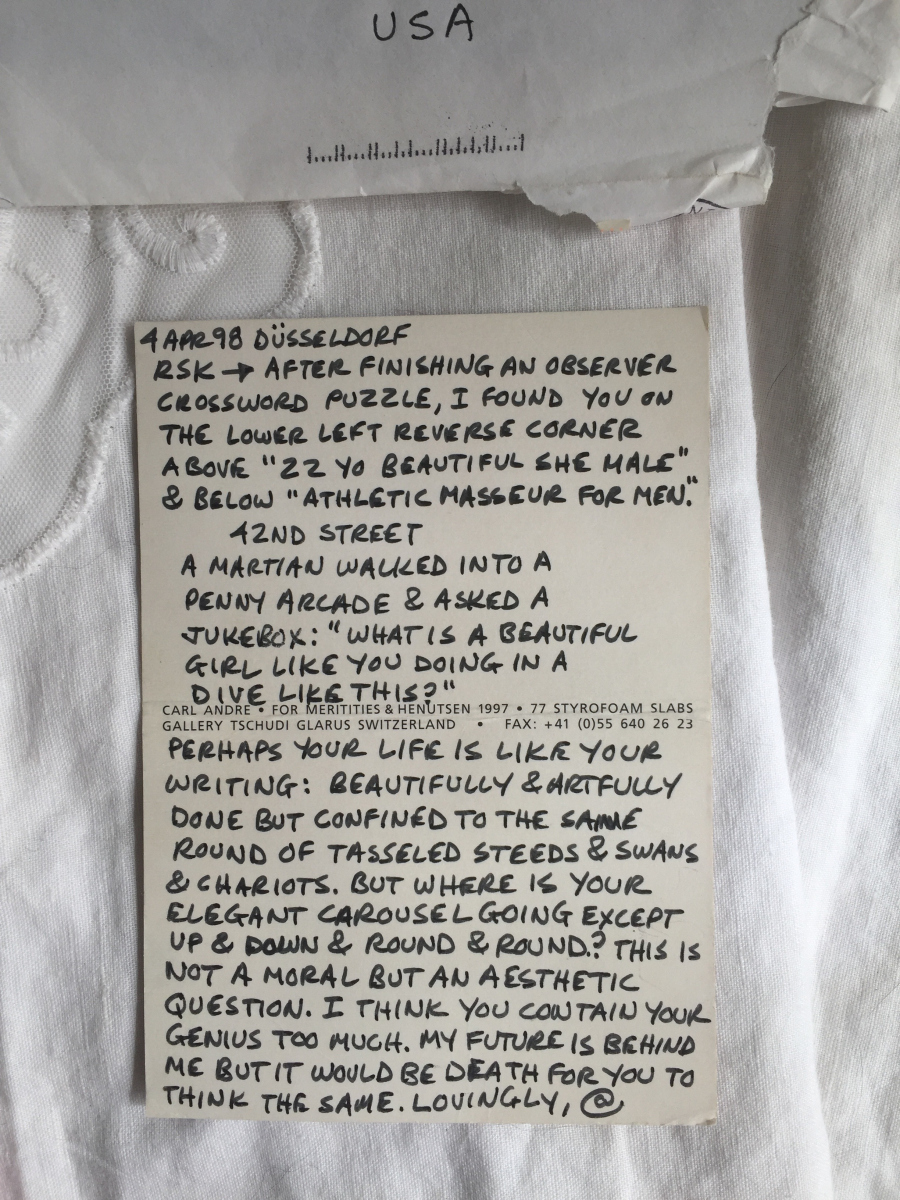 USA
4 APR 98 DÜSSELDORF
RSK → AFTER FINISHING AN OBSERVER
CROSSWORD PUZZLE, I FOUND YOU ON
THE LOWER LEFT REVERSE CORNER
ABOVE "22 YO BEAUTIFUL SHE MALE"
& BELOW "ATHLETIC MASSEUR FOR MEN."
42ND STREET
A MARTIAN WALKED INTO A
PENNY ARCADE & ASKED A
JUKEBOX: "WHAT IS A BEAUTIFUL
GIRL LIKE YOU DOING IN A
DIVE LIKE THIS?"
CARL ANDRE • FOR MERITITIES & HENUTSEN 1997 • 77 STYROFOAM SLABS
GALLERY TSCHUDI GLARUS SWITZERLAND • FAX: +41 (0)55 640 26 23
PERHAPS YOUR LIFE IS LIKE YOUR
WRITING: BEAUTIFULLY & ARTFULLY
DONE BUT CONFINED TO THE SAME
ROUND OF TASSELED STEEDS & SWANS
& CHARIOTS. BUT WHERE IS YOUR
ELEGANT CAROUSEL GOING EXCEPT
UP & DOWN & ROUND & ROUND? THIS IS
NOT A MORAL BUT AN AESTHETIC
QUESTION. I THINK YOU CONTAIN YOUR
GENIUS TOO MUCH. MY FUTURE IS BEHIND
ME BUT IT WOULD BE DEATH FOR YOU TO
THINK THE SAME. LOVINGLY, @